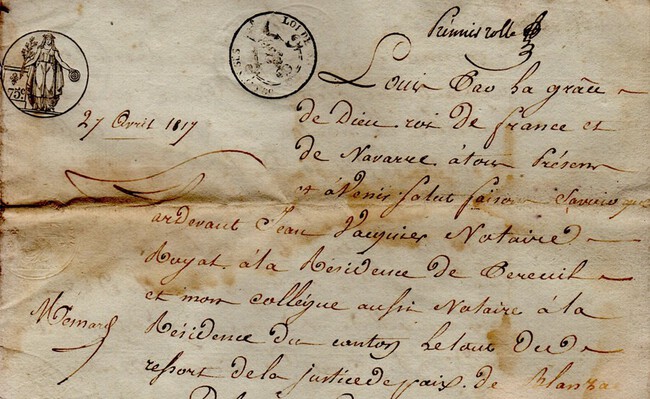 75C
LOI DE
Premier rolle
27 Avril 1817
Louis Par La grâce
de Dieu roi de france et
de Navarre à tous Présens
et à Venir Salut faisons Savoir que
Pardevant Jean Jacques Notaire
Royal à la Résidence de Pereuil
et mon collégue aussi Notaire à la
Résidence du canton Le tout du
ressort de la justice de paix de Blanzac